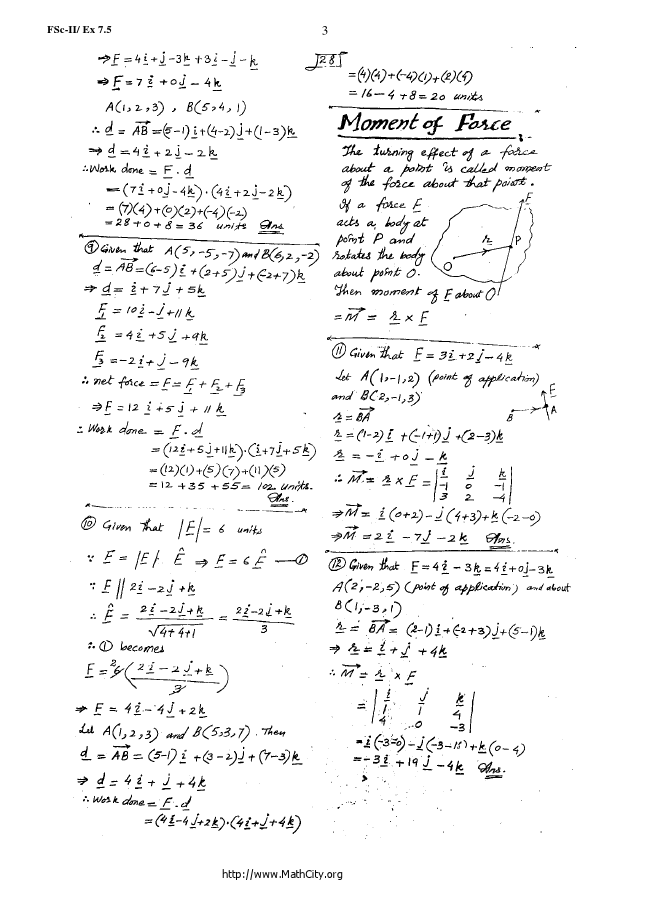 FSc-II/ Ex 7.5
3
⇒ F = 4i + j - 3k + 3i - j - k
⇒ F = 7i + 0j - 4k
A(1,2,3) , B(5,4,1)
∴ d = AB = (5-1)i + (4-2)j + (1-3)k
⇒ d = 4i + 2j - 2k
∴ Work done = F . d
= (7i + 0j - 4k) . (4i + 2j - 2k)
= (7)(4) + (0)(2) + (-4)(-2)
= 28 + 0 + 8 = 36 units Ans
⑨ Given that A(5,-5,-7) and B(6,2,-2)
d = AB = (6-5)i + (2+5)j + (-2+7)k
⇒ d = i + 7j + 5k
F₁ = 10i - j + 11k
F₂ = 4i + 5j + 9k
F₃ = -2i + j - 9k
∴ net force = F = F₁ + F₂ + F₃
⇒ F = 12i + 5j + 11k
∴ Work done = F . d
= (12i + 5j + 11k) . (i + 7j + 5k)
= (12)(1) + (5)(7) + (11)(5)
= 12 + 35 + 55 = 102 units.
Ans.
⑩ Given that |F| = 6 units
∵ F = |F| F̂ ⇒ F = 6 F̂ — ①
∵ F || 2i - 2j + k
∴ F̂ = (2i - 2j + k)/√(4+4+1) = (2i - 2j + k)/3
∴ ① becomes
F = 6² ((2i - 2j + k)/3)
⇒ F = 4i - 4j + 2k
Let A(1,2,3) and B(5,3,7). Then
d = AB = (5-1)i + (3-2)j + (7-3)k
⇒ d = 4i + j + 4k
∴ Work done = F . d
= (4i - 4j + 2k) . (4i + j + 4k)
28
= (4)(4) + (-4)(1) + (2)(4)
= 16 - 4 + 8 = 20 units
Moment of Force
The turning effect of a force
about a point is called moment
of the force about that point.
If a force F
acts a body at
point P and
rotates the body
about point O.
Then moment of F about O
= M = r × F
F
r
P
O
⑪ Given that F = 3i + 2j - 4k
Let A(1,-1,2) (point of application)
and B(2,-1,3)
r = BA
F
B
A
r = (1-2)i + (-1+1)j + (2-3)k
r = -i + 0j - k
∴ M = r × F = | i j k |
| -1 0 -1 |
| 3 2 -4 |
⇒ M = i(0+2) - j(4+3) + k(-2-0)
⇒ M = 2i - 7j - 2k Ans.
⑫ Given that F = 4i - 3k = 4i + 0j - 3k
A(2,-2,5) (point of application) and about
B(1,-3,1)
r = BA = (2-1)i + (-2+3)j + (5-1)k
⇒ r = i + j + 4k
∴ M = r × F
= | i j k |
| 1 1 4 |
| 4 0 -3 |
= i(-3-0) - j(-3-16) + k(0-4)
= -3i + 19j - 4k Ans.
http://www.MathCity.org